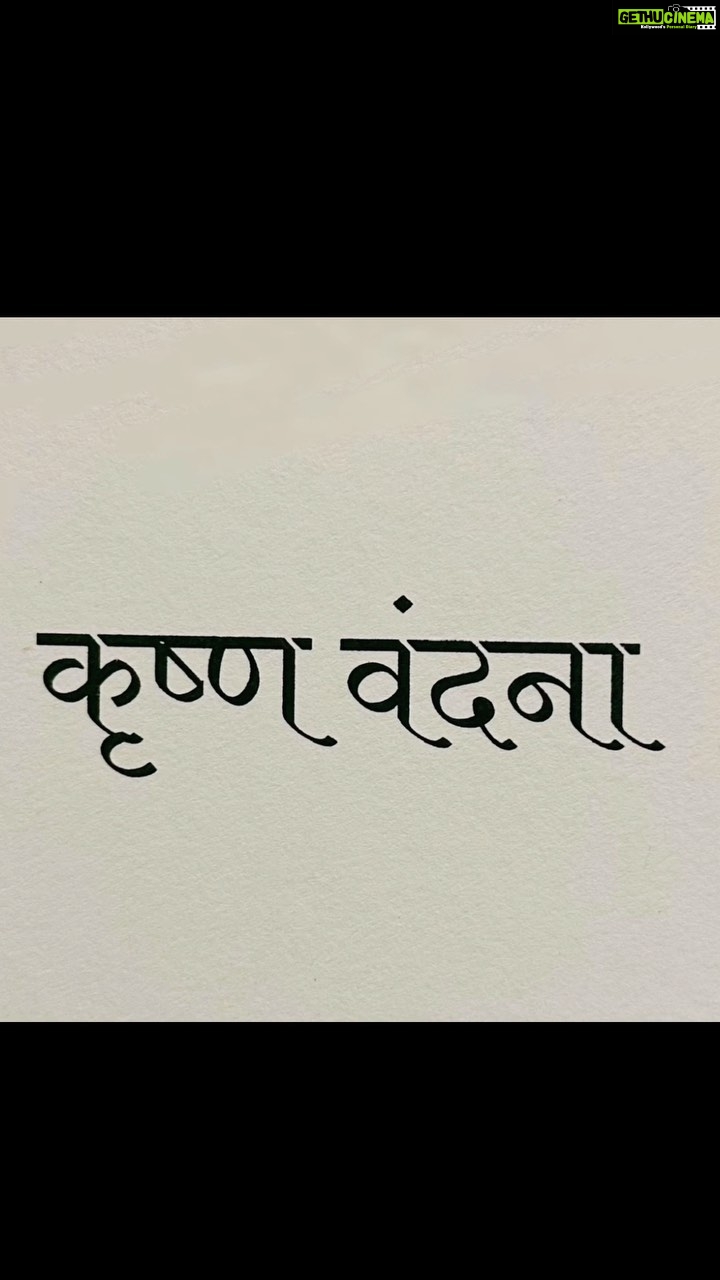 GETHUCINEMA
Kollywood's Personal Diary
कृष्ण वंदना